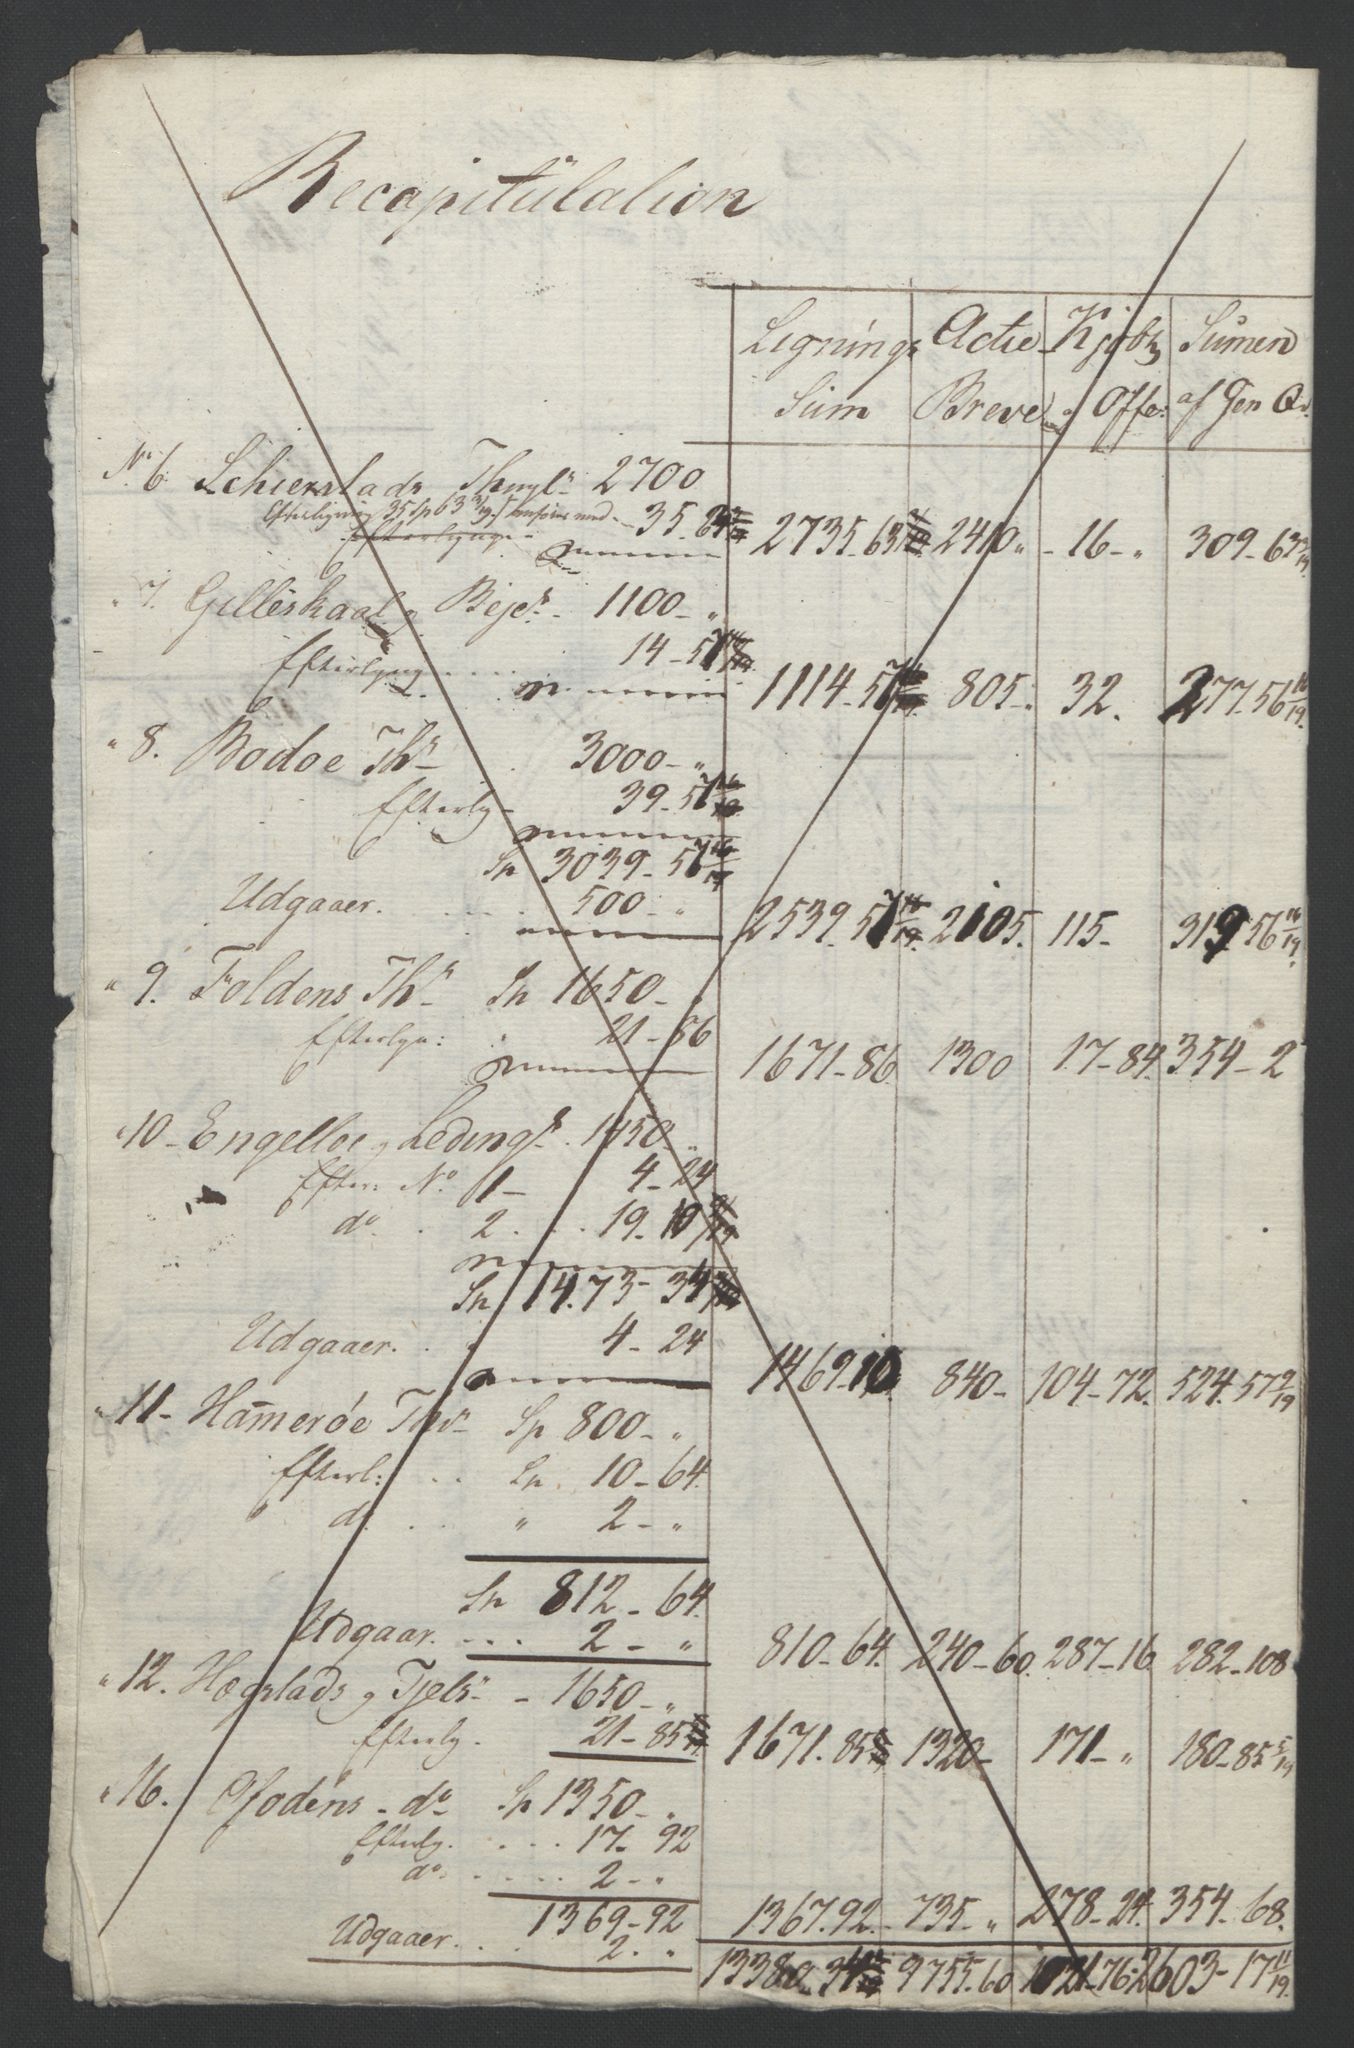 Recapitulation
Lignings Actie Kjøbm Sumen
Sum Breve og Offe: af Gen Qv.
No 6 Schierstads Thingl 2700
Efterligning 35 Sp 63 3/19 s anføres med - 35. 64
Efterlignge 2735-63 2410 " - 16 - " 309-63 3/19
" 7. Gilleskaal og Bejer - 1100 - "
Efterlygng 14-57
1114-57 805-" 32. 277-56 16/19
" 8. Bodoe Th 3000 - "
Efterlg - 39-57
Sp 3039-57
Udgaaer. 500 - " 2539.57 2105. 115- 319 56 16/19
" 9. Foldens Th Sp 1650 - "
Efterlgn: 21-86
1671-86 1300 17-84 354-2
" 10 - Engelloe og Leding 1450 - "
Efter: No 1 - 4-24
do . 2. . . 19. 10
Sp 1473-34
Udgaaer. 4-24
1469-10 840- 104-72. 524. 57 9/19
" 11 - Hamerøe Th Sp 800 - "
Efterl: Sp 10-64
do " 2 - "
Sp 812-64
Udgaar. 2 - " 810-64. 240-60. 287-16 282-108
" 12. Hegstads og Tjels - 1650 - "
Efterlg. 21-85 1671.85 1320- 171 - " 180-85 5/19
" 16. Ofodens - do Sp 1350 - "
Efterlg. 17-92
do. 2 - "
1369-92 1367.92. 735 - " 278-24. 354-68.
Udgaaer. 2. "
13380.34 9755.60 1021-76 2603-17 11/19